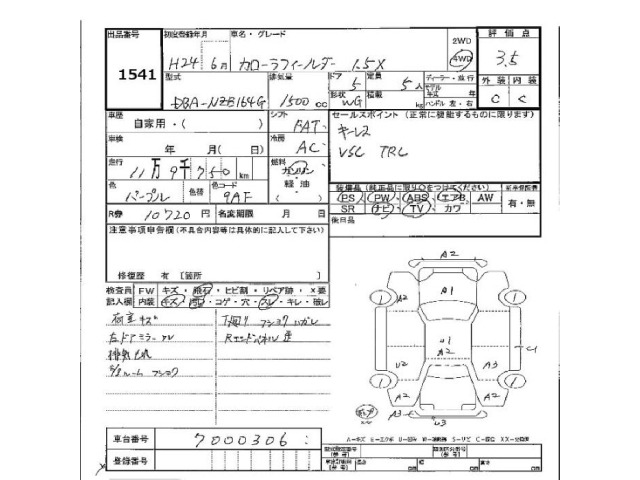 出品番号 初度登録年月 車名・グレード 2WD 評価点
1541 H24 6月 カローラフィールダー 1.5X 4WD 3.5
型式 排気量 ドア 定員 ディーラー・並行 外装 内装
DBA-NZE164G 1500cc 5 5人 モデル 年式 年 C C
形状 WG 積載 kg ハンドル 左・右
車歴 自家用・( ) シフト FAT セールスポイント(正常に機能するものに限ります)
車検 年 月(日) 冷房 AC キーレス
VSC TRC
走行 11万9千750km 燃料 ガソリン・軽油・( )
色 パープル 色替 色コード 9AF 装備品(純正品に限り○をつけてください) 新車保証書
PS・PW・ABS・エアB AW 有・無
R券 10720円 名変期限 月 日 SR ナビ・TV・カワ
注意事項申告欄(不具合内容等は具体的に記入して下さい) 後日品
修復歴 有[箇所 ]
検査員 FW キズ・飛石・ヒビ割・リペア跡・X要
記入欄 内装 キズ コゲ・穴・スレ・キレ・破レ
荷室キズ 下回りフショクハガレ
左ドアミラースレ Rエンドパネル歪
A2
1 A2 A1 1
U1
A2
U2 A3
1 A2 A2 1
A3 U3
車台番号 7000306
登録番号